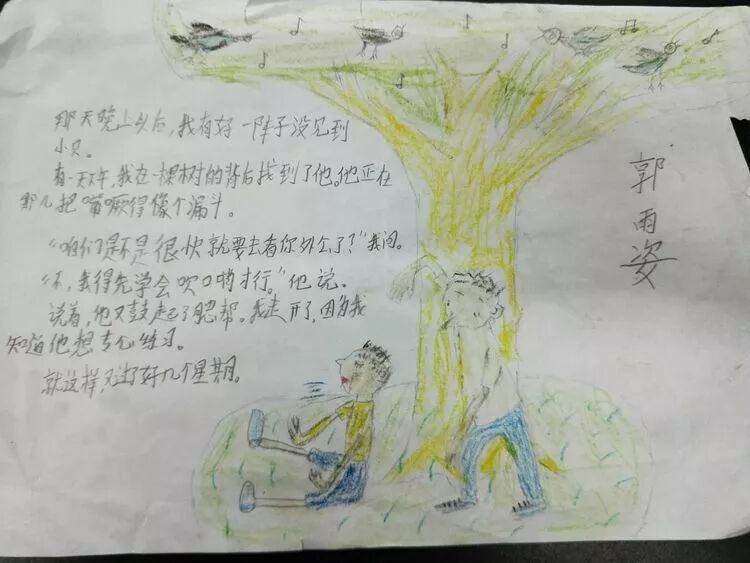 那天晚上以后,我有好一阵子没见到
小贝。
有一天下午,我在一棵树的背后找到了他。他正在
那儿把嘴撅得像个漏斗。
“咱们是不是很快就要去看你外公了?”我问。
“不,我得先学会吹口哨才行。”他说。
说着,他又鼓起了腮帮。我走开了,因为我
知道他想专心练习。
就这样,又过了好几个星期。
郭雨姿